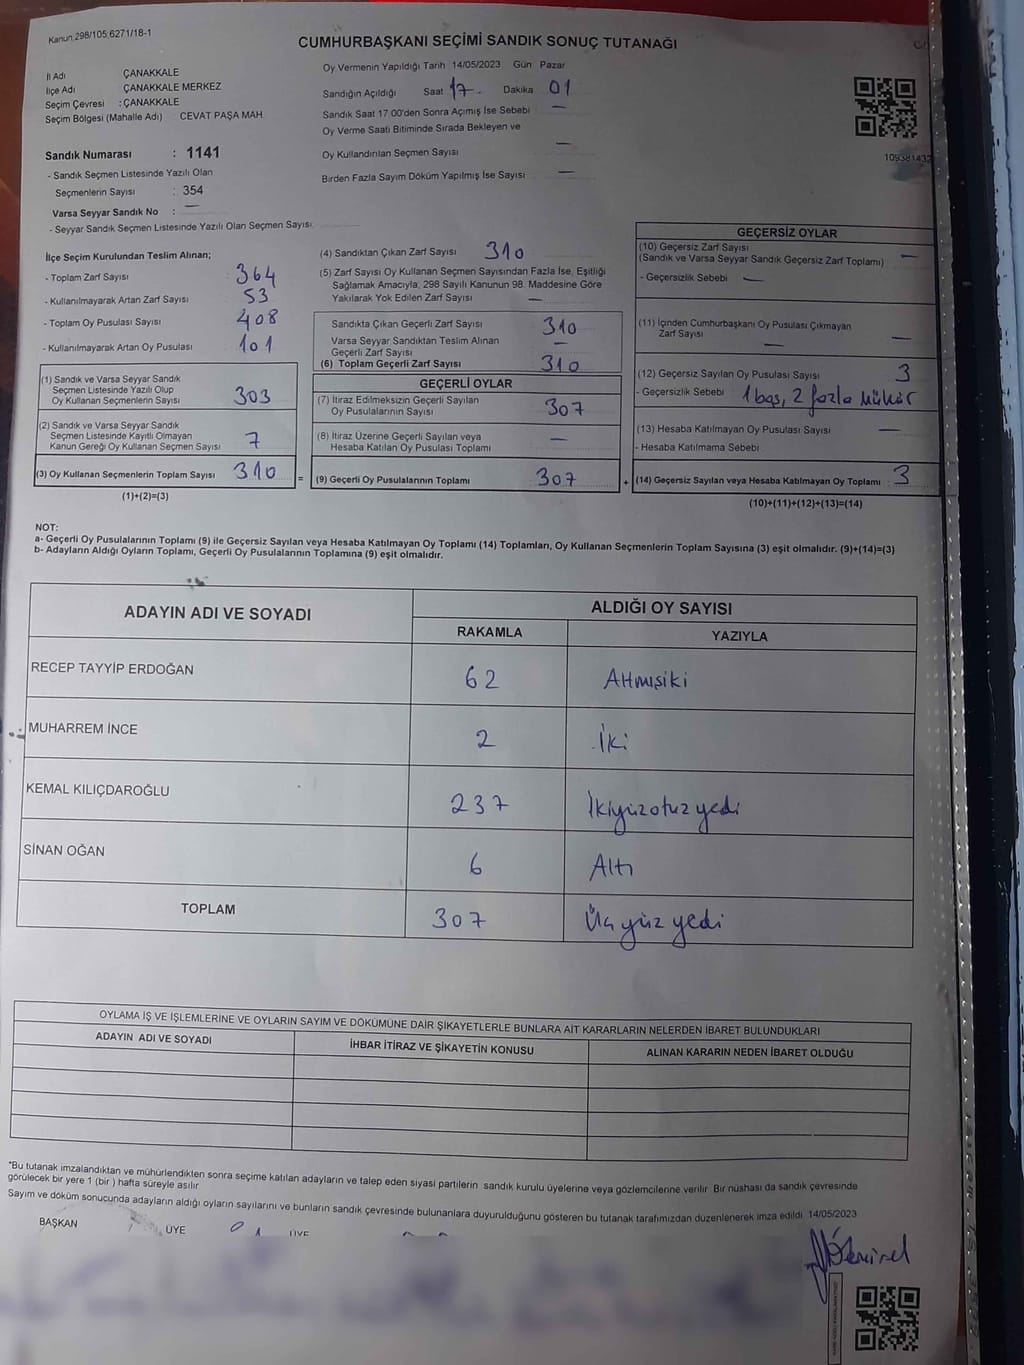 Kanun:298/105;6271/18-1
CUMHURBAŞKANI SEÇİMİ SANDIK SONUÇ TUTANAĞI
İl Adı ÇANAKKALE
İlçe Adı ÇANAKKALE MERKEZ
Seçim Çevresi : ÇANAKKALE
Seçim Bölgesi (Mahalle Adı) CEVAT PAŞA MAH
Sandık Numarası : 1141
- Sandık Seçmen Listesinde Yazılı Olan
Seçmenlerin Sayısı : 354
Varsa Seyyar Sandık No : —
- Seyyar Sandık Seçmen Listesinde Yazılı Olan Seçmen Sayısı:
Oy Vermenin Yapıldığı Tarih 14/05/2023 Gün Pazar
Sandığın Açıldığı Saat 17. Dakika 01
Sandık Saat 17.00'den Sonra Açımış İse Sebebi —
Oy Verme Saati Bitiminde Sırada Bekleyen ve
Oy Kullandırılan Seçmen Sayısı —
Birden Fazla Sayım Döküm Yapılmış İse Sayısı —
109381432
İlçe Seçim Kurulundan Teslim Alınan;
- Toplam Zarf Sayısı 364
- Kullanılmayarak Artan Zarf Sayısı 53
- Toplam Oy Pusulası Sayısı 408
- Kullanılmayarak Artan Oy Pusulası 101
(1) Sandık ve Varsa Seyyar Sandık
Seçmen Listesinde Yazılı Olup
Oy Kullanan Seçmenlerin Sayısı 303
(2) Sandık ve Varsa Seyyar Sandık
Seçmen Listesinde Kayıtlı Olmayan
Kanun Gereği Oy Kullanan Seçmen Sayısı 7
(3) Oy Kullanan Seçmenlerin Toplam Sayısı 310 =
(1)+(2)=(3)
(4) Sandıktan Çıkan Zarf Sayısı 310
(5) Zarf Sayısı Oy Kullanan Seçmen Sayısından Fazla İse, Eşitliği
Sağlamak Amacıyla, 298 Sayılı Kanunun 98. Maddesine Göre
Yakılarak Yok Edilen Zarf Sayısı —
Sandıkta Çıkan Geçerli Zarf Sayısı 310
Varsa Seyyar Sandıktan Teslim Alınan
Geçerli Zarf Sayısı —
(6) Toplam Geçerli Zarf Sayısı 310
GEÇERLİ OYLAR
(7) İtiraz Edilmeksizin Geçerli Sayılan
Oy Pusulalarının Sayısı 307
(8) İtiraz Üzerine Geçerli Sayılan veya
Hesaba Katılan Oy Pusulası Toplamı —
(9) Geçerli Oy Pusulalarının Toplamı 307 +
GEÇERSİZ OYLAR
(10) Geçersiz Zarf Sayısı
(Sandık ve Varsa Seyyar Sandık Geçersiz Zarf Toplamı) —
- Geçersizlik Sebebi —
(11) İçinden Cumhurbaşkanı Oy Pusulası Çıkmayan
Zarf Sayısı — —
(12) Geçersiz Sayılan Oy Pusulası Sayısı 3
- Geçersizlik Sebebi 1 boş, 2 fazla mühür
(13) Hesaba Katılmayan Oy Pusulası Sayısı —
- Hesaba Katılmama Sebebi
(14) Geçersiz Sayılan veya Hesaba Katılmayan Oy Toplamı 3
(10)+(11)+(12)+(13)=(14)
NOT:
a- Geçerli Oy Pusulalarının Toplamı (9) ile Geçersiz Sayılan veya Hesaba Katılmayan Oy Toplamı (14) Toplamları, Oy Kullanan Seçmenlerin Toplam Sayısına (3) eşit olmalıdır. (9)+(14)=(3)
b- Adayların Aldığı Oyların Toplamı, Geçerli Oy Pusulalarının Toplamına (9) eşit olmalıdır.
ADAYIN ADI VE SOYADI ALDIĞI OY SAYISI
RAKAMLA YAZIYLA
RECEP TAYYİP ERDOĞAN 62 Altmışiki
MUHARREM İNCE 2 İki
KEMAL KILIÇDAROĞLU 237 İkiyüzotuzyedi
SİNAN OĞAN 6 Altı
TOPLAM 307 Üçyüzyedi
OYLAMA İŞ VE İŞLEMLERİNE VE OYLARIN SAYIM VE DÖKÜMÜNE DAİR ŞİKAYETLERLE BUNLARA AİT KARARLARIN NELERDEN İBARET BULUNDUKLARI
ADAYIN ADI VE SOYADI İHBAR İTİRAZ VE ŞİKAYETİN KONUSU ALINAN KARARIN NEDEN İBARET OLDUĞU
*Bu tutanak imzalandıktan ve mühürlendikten sonra seçime katılan adayların ve talep eden siyasi partilerin sandık kurulu üyelerine veya gözlemcilerine verilir Bir nüshası da sandık çevresinde
görülecek bir yere 1 (bir ) hafta süreyle asılır
Sayım ve döküm sonucunda adayların aldığı oyların sayılarını ve bunların sandık çevresinde bulunanlara duyurulduğunu gösteren bu tutanak tarafımızdan düzenlenerek imza edildi. 14/05/2023
BAŞKAN ÜYE ÜYE